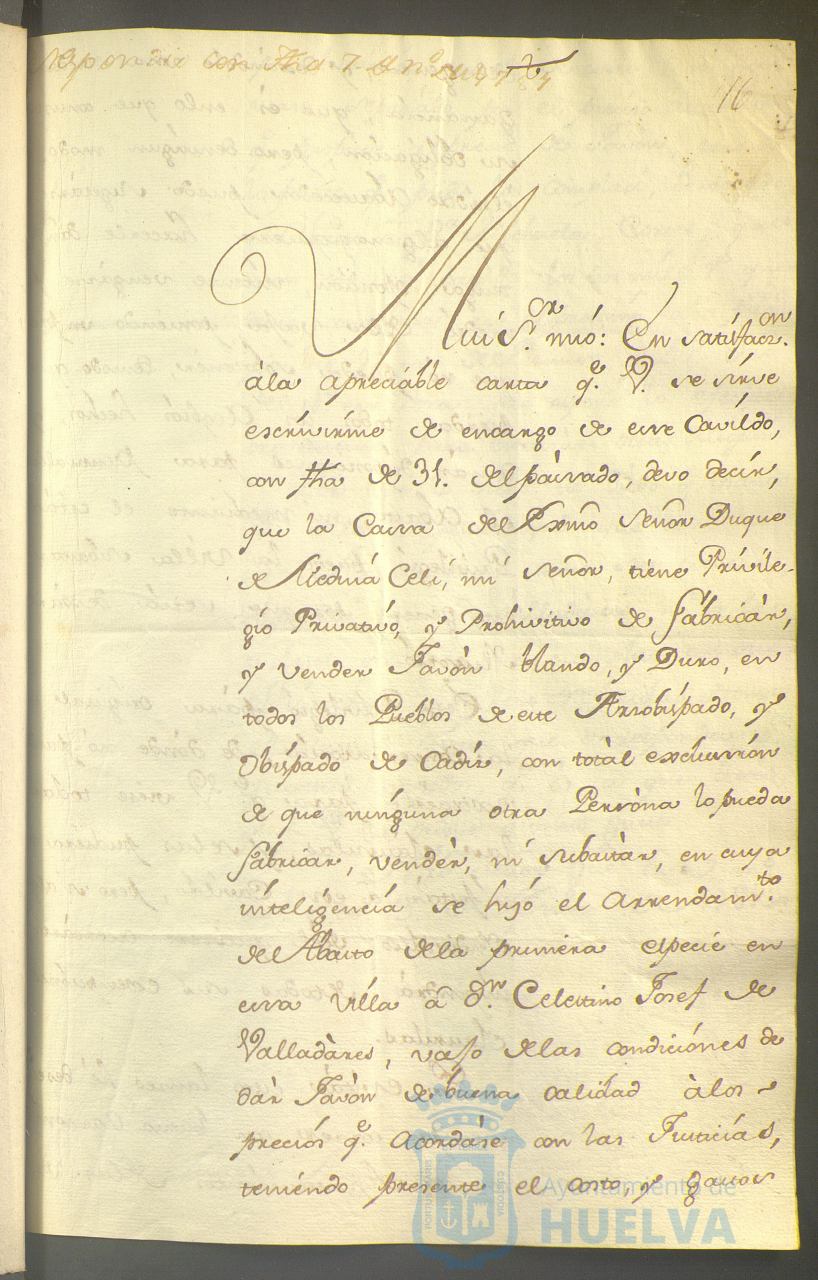 16
Mui S.or mio: En satisfacc.on
à la apreciable carta q.e V. se sirve
escrivirme de encargo de ese Cavildo,
con fha de 31. del pasado, devo decir,
que la Casa del Exmo Señor Duque
de Medina Celi, mi señor, tiene Privile-
gio Privativo, y Prohivitivo de fabricar,
y vender Javòn blando, y Duro, en
todos los Pueblos de este Arzobispado, y
Obispado de Cadiz, con totàl exclusion
de que ninguna otra Persona lo pueda
fabricar, vendèr, ni subastàr, en cuya
inteligencia se hizo el Arrendam.to
del Abasto de la primera especie en
esa Villa à D.n Celestino Josef de
Valladàres, vajo de las condiciones de
dàr Javòn de buena calidad à los
precios q.e acordàse con las Justicias,
teniendo presente el costo, y gastos
Ayuntamiento de
HUELVA